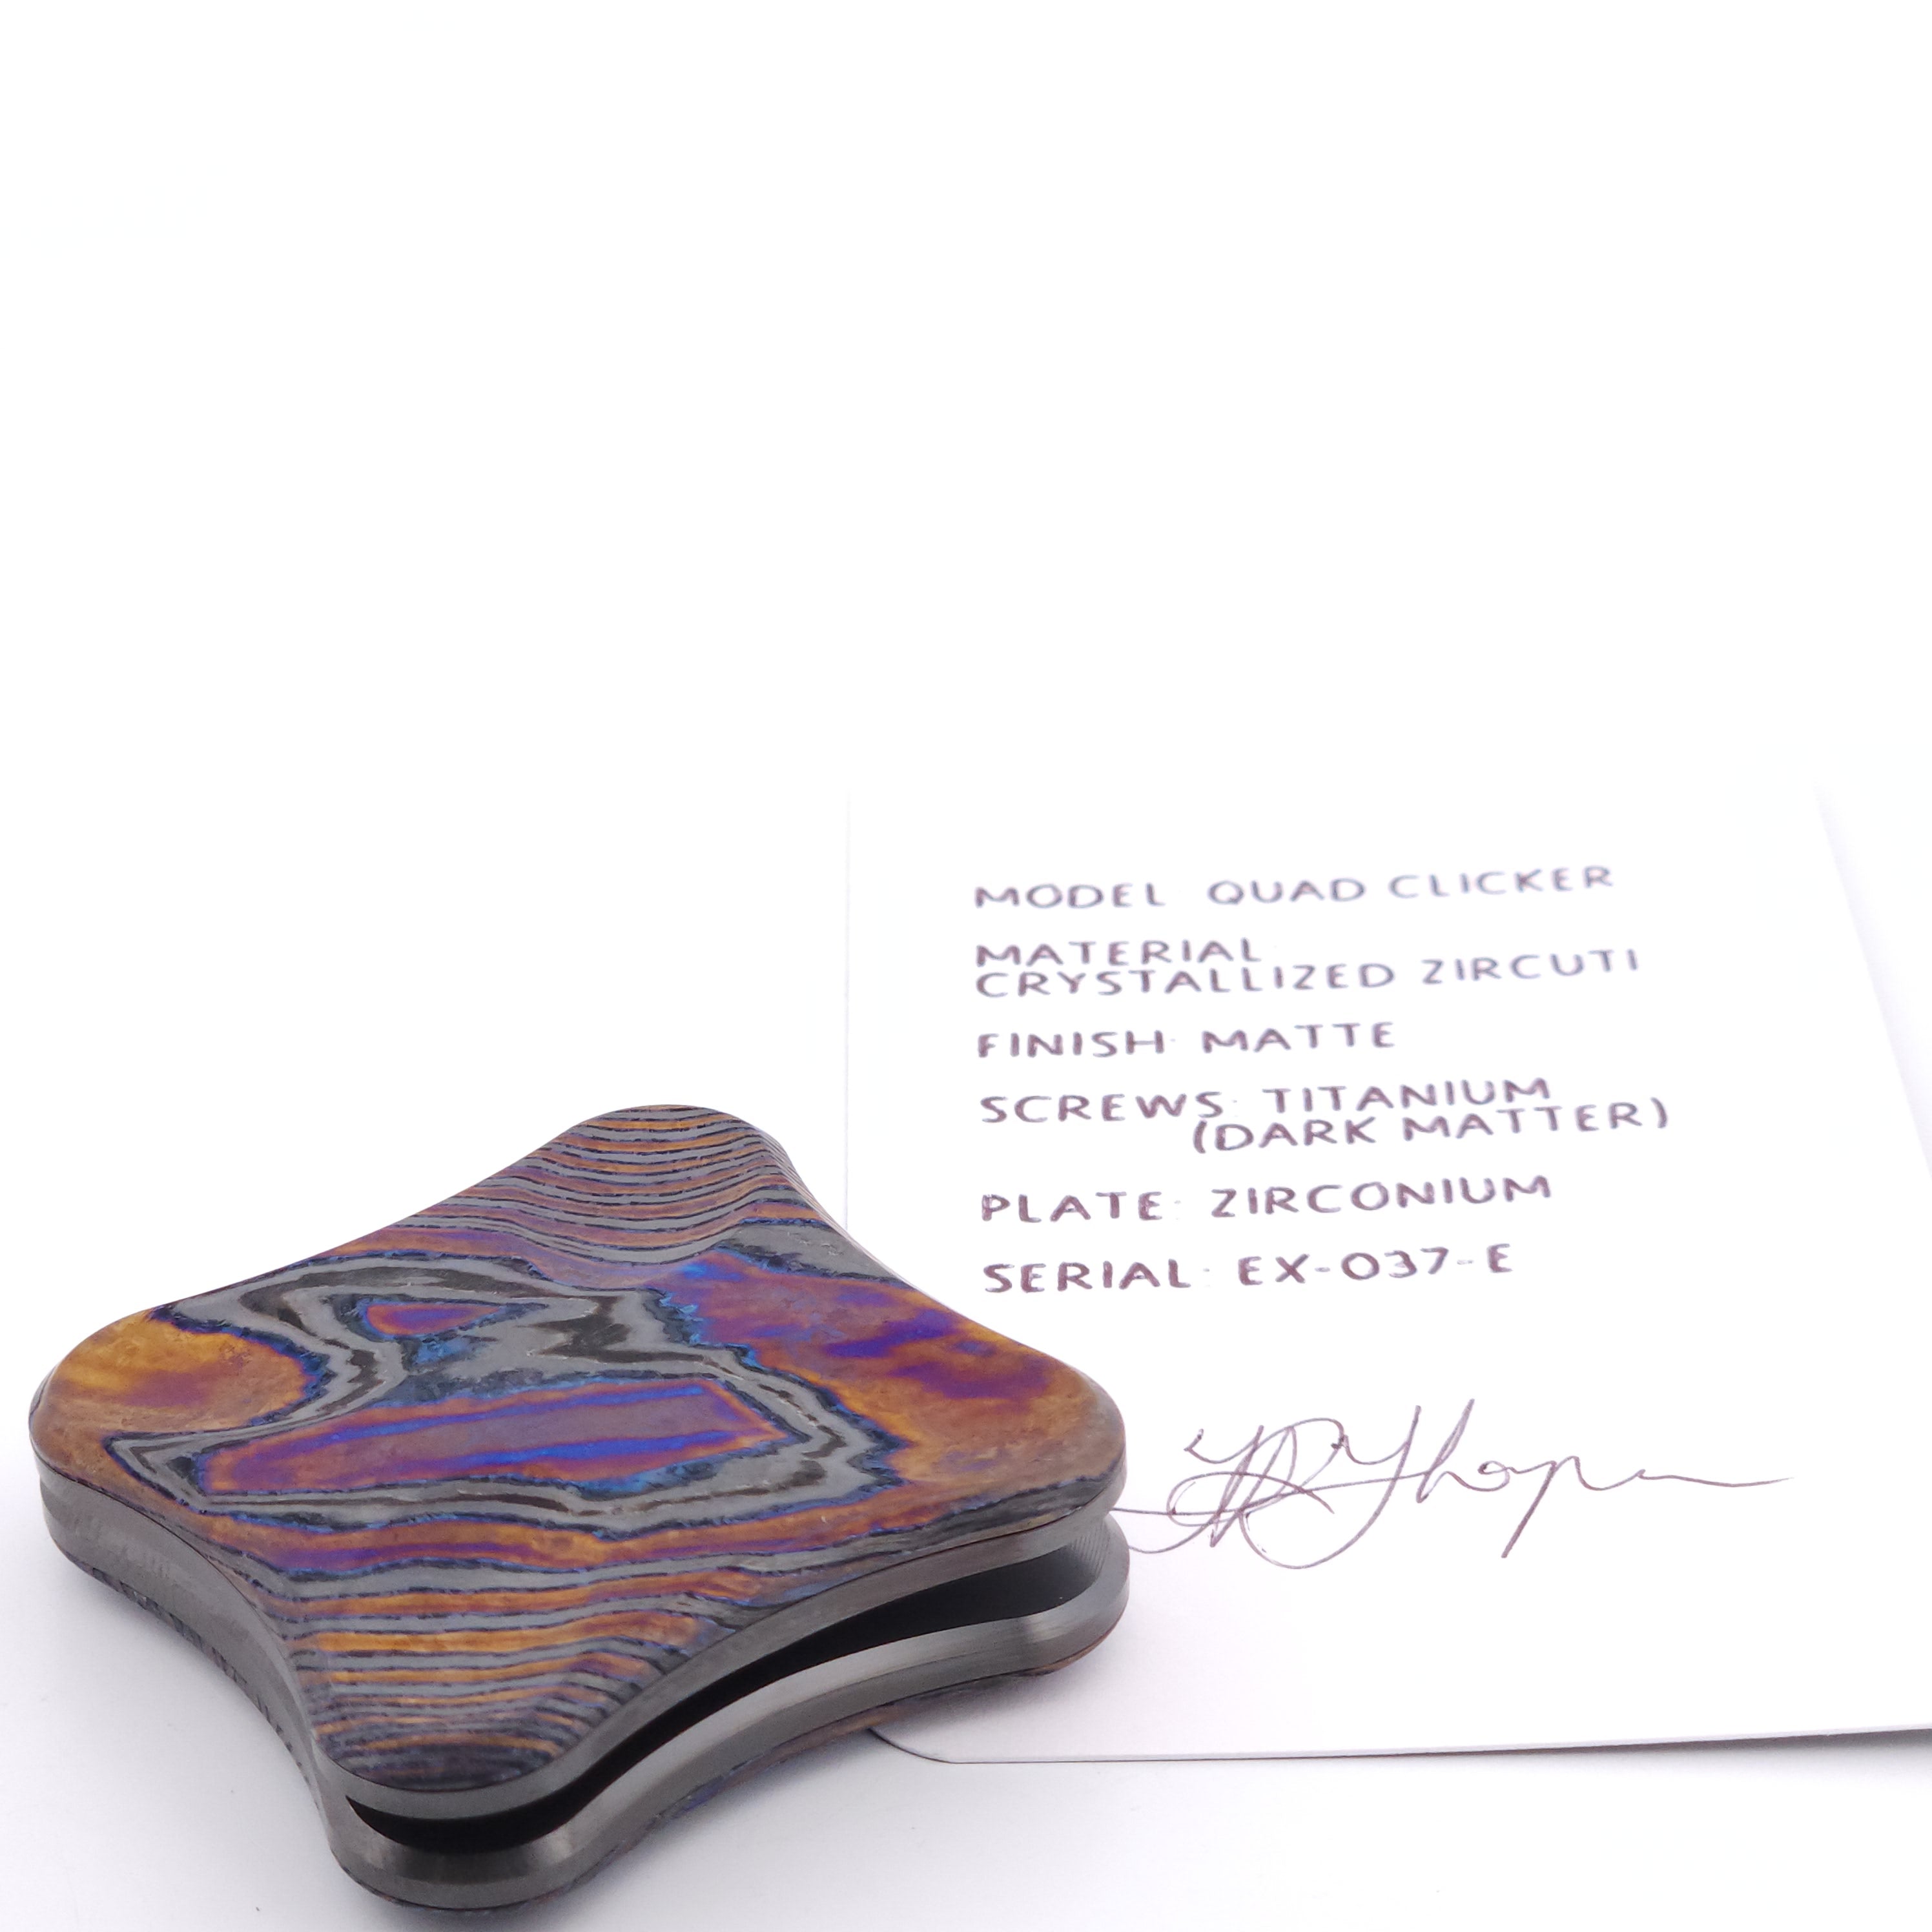 MODEL QUAD CLICKER
MATERIAL
CRYSTALLIZED ZIRCUTI
FINISH: MATTE
SCREWS: TITANIUM
(DARK MATTER)
PLATE: ZIRCONIUM
SERIAL: EX-037-E